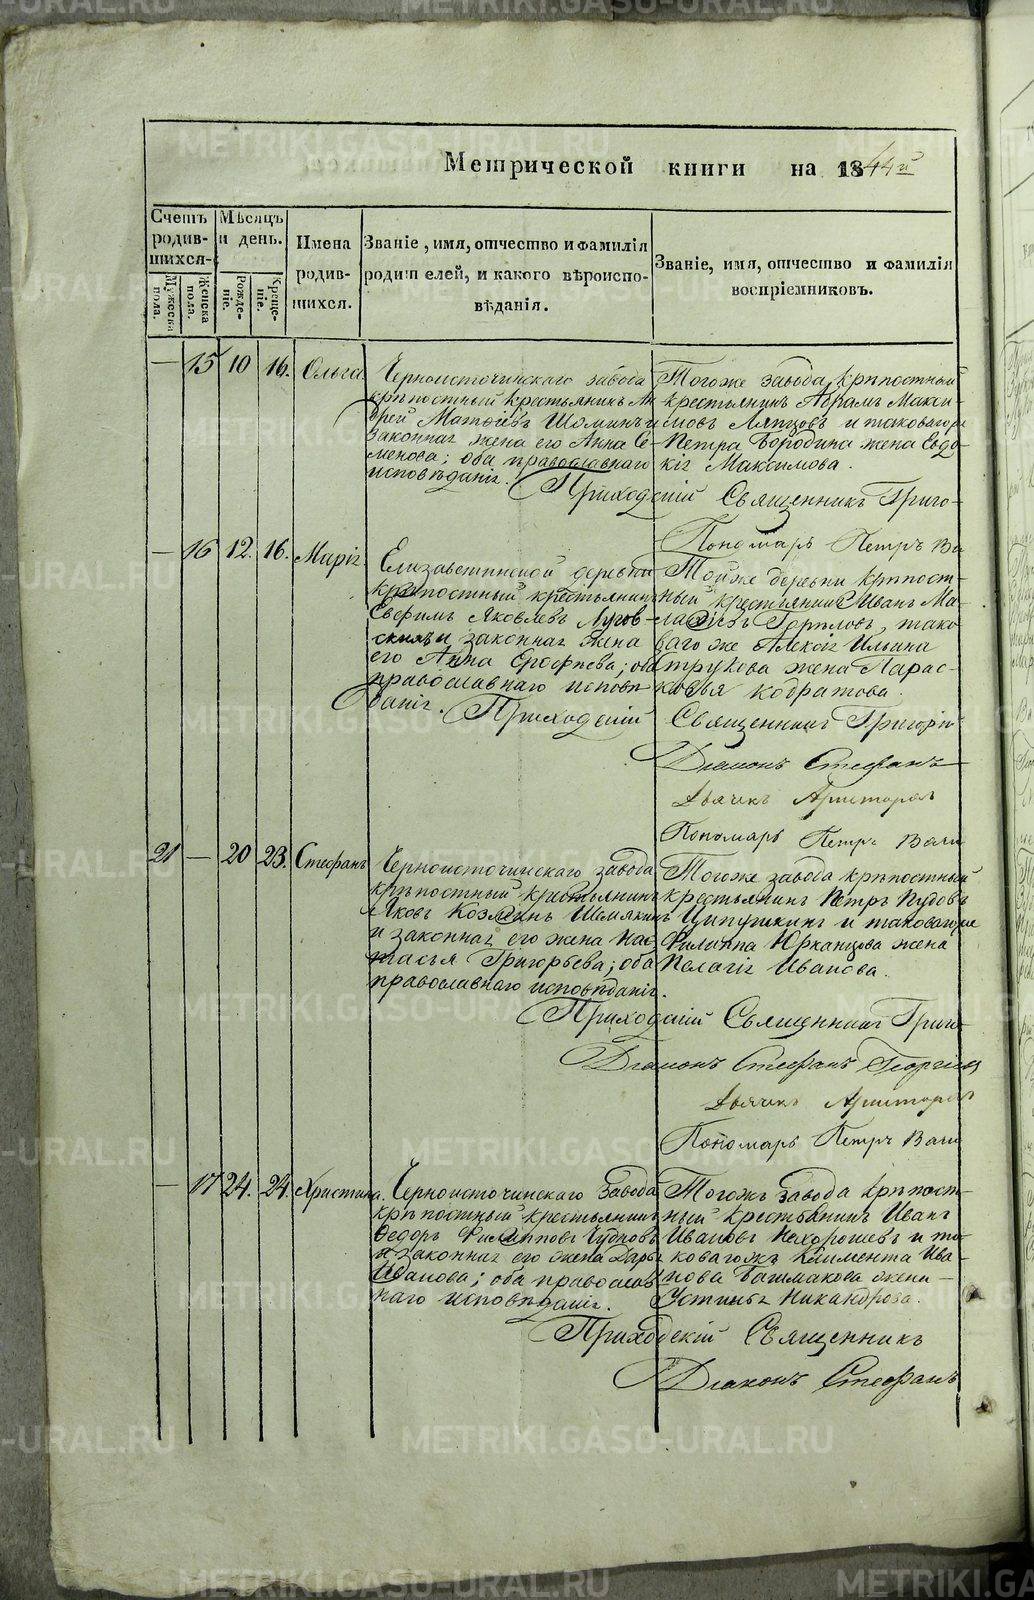 Метрической книги на 1844й
Счетъ родив-шихся.
Мѣсяцъ и день.
Имена родив-шихся.
Званіе, имя, отчество и фамилія
родителей, и какого вѣроиспо-
вѣданія.
Званіе, имя, отчество и фамилія
воспріемниковъ.
Мужеска пола.
Женска пола.
Рожде-ніе.
Креще-ніе.
— 15 10 16. Ольга.
Черноисточинскаго завода
крѣпостный крестьянинъ Ан
дрей Матвѣевъ Шоминъ и
законная жена его Анна Се-
менова; оба православнаго
исповѣданія.
Тогоже завода крѣпостный
крестьянинъ Абрамъ Макси-
мовъ Ляпцовъ и таковагоже
Петра Бородина жена Евдо-
кія Максимова.
Приходскій Священникъ Григо-
Пономарь Петръ Ва
— 16 12. 16. Марія.
Елизаветинской деревни
крѣпостный крестьянинъ
Евфимъ Яковлевъ Лугов-
скихъ и законная жена
его Анна Ерофѣева; оба
православнаго исповѣ
данія.
Тойже деревни крѣпост-
ный крестьянинъ Иванъ Ма-
Горѣловъ, тако-
вагоже Алексія Ильина
жена Парас-
ковья
Приходскій Священникъ Григорій
Діаконъ Стефанъ
Дьячекъ Аристархъ
Пономарь Петръ Васи
21 — 20 23. Стефанъ
Черноисточинскаго завода
крѣпостный крестьянинъ
Яковъ Козминъ Шемякинъ
и законная его жена Нас-
тасья Григорьева; оба
православнаго исповѣданія.
Тогоже завода крѣпостный
крестьянинъ Петръ Пудовъ
Ципушкинъ и таковагоже
Филиппа Юрканцова жена
Пелагія Иванова.
Приходскій Священникъ Григо-
Діаконъ Стефанъ Георгіев
Дьячекъ Аристархъ
Пономарь Петръ Васи
— 17 24. 24. Христина.
Черноисточинскаго завода
крѣпостный крестьянинъ
Федоръ Филипповъ Чудновъ
и законная его жена Дарья
Иванова; оба православ-
наго исповѣданія.
Тогожъ завода крѣпост-
ный крестьянинъ Иванъ
Ивановъ Нехорошевъ и та-
ковагожъ Климента Ива-
нова Башмакова жена
Устинья Никандрова.
Приходскій Священникъ
Діаконъ Стефанъ
METRIKI.GASO-URAL.RU